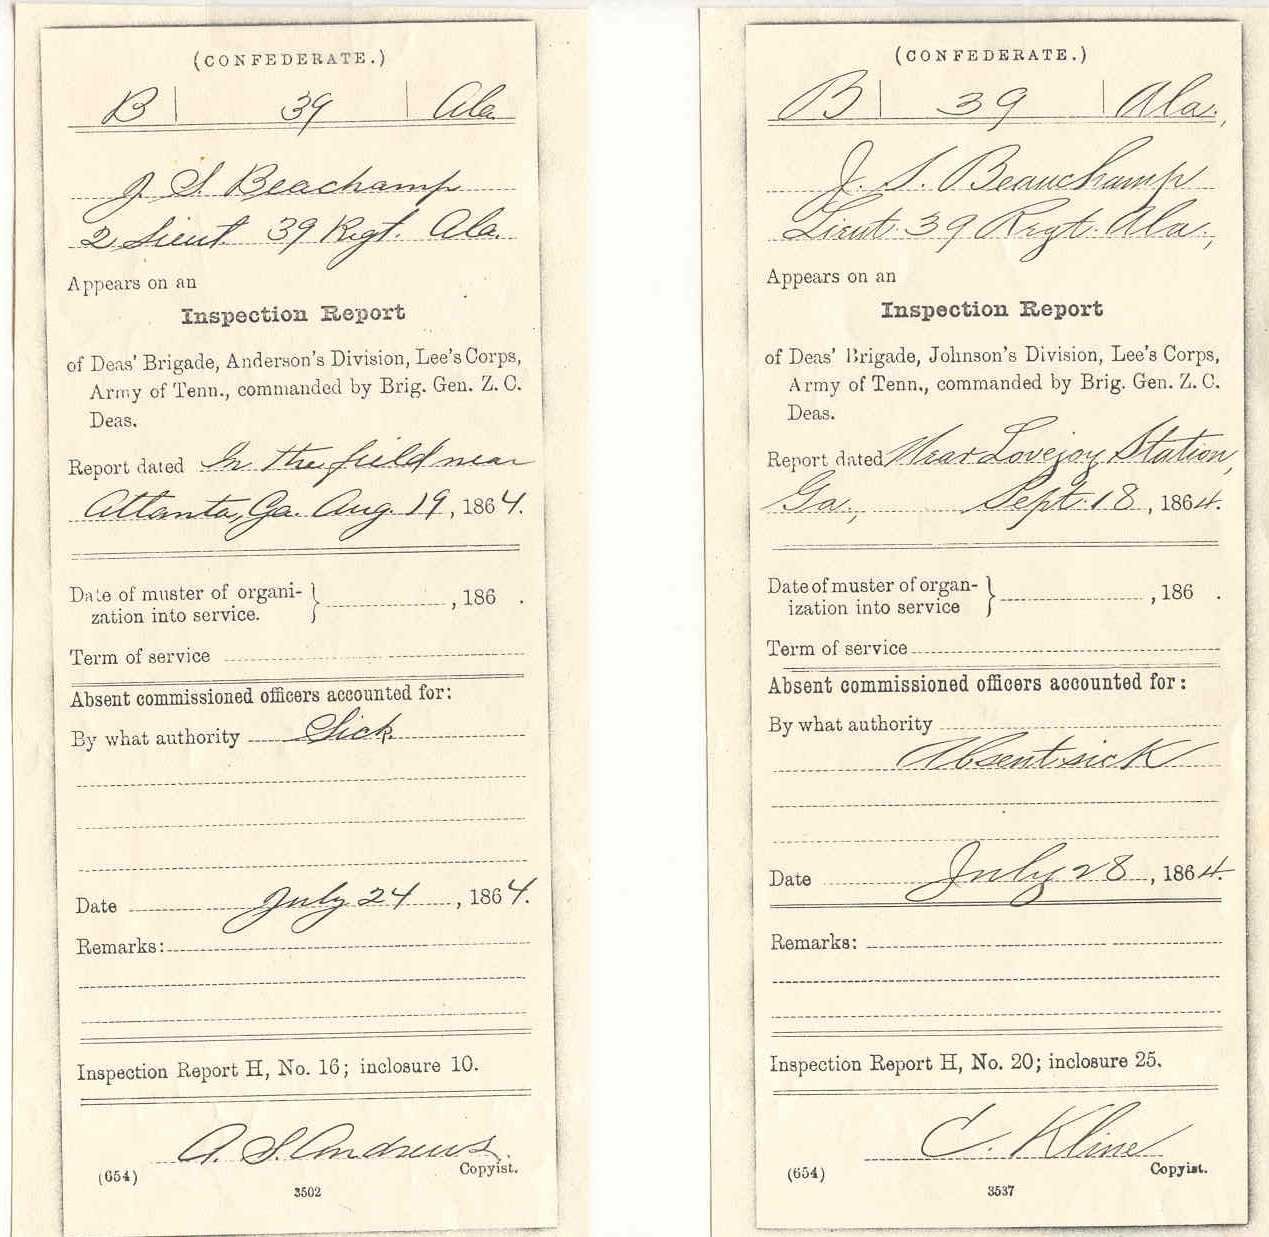 (CONFEDERATE.)
B | 39 | Ala.
J. S. Beachamp
2 Lieut. 39 Regt. Ala.
Appears on an
Inspection Report
of Deas' Brigade, Anderson's Division, Lee's Corps,
Army of Tenn., commanded by Brig. Gen. Z. C.
Deas.
Report dated In the field near
Atlanta, Ga. Aug. 19, 1864.
Date of muster of organi-
zation into service. } , 186 .
Term of service
Absent commissioned officers accounted for:
By what authority Sick
Date July 24, 1864.
Remarks:
Inspection Report H, No. 16; inclosure 10.
A. S. Andrews.
Copyist.
(654)
3502
(CONFEDERATE.)
B | 39 | Ala.,
J. S. Beauchamp
Lieut. 39 Regt. Ala.,
Appears on an
Inspection Report
of Deas' Brigade, Johnson's Division, Lee's Corps,
Army of Tenn., commanded by Brig. Gen. Z. C.
Deas.
Report dated Near Lovejoy Station,
Ga., Sept. 18, 1864.
Date of muster of organ-
ization into service } , 186 .
Term of service
Absent commissioned officers accounted for:
By what authority
Absent sick
Date July 28, 1864.
Remarks:
Inspection Report H, No. 20; inclosure 25.
C. Kline
Copyist.
(654)
3537